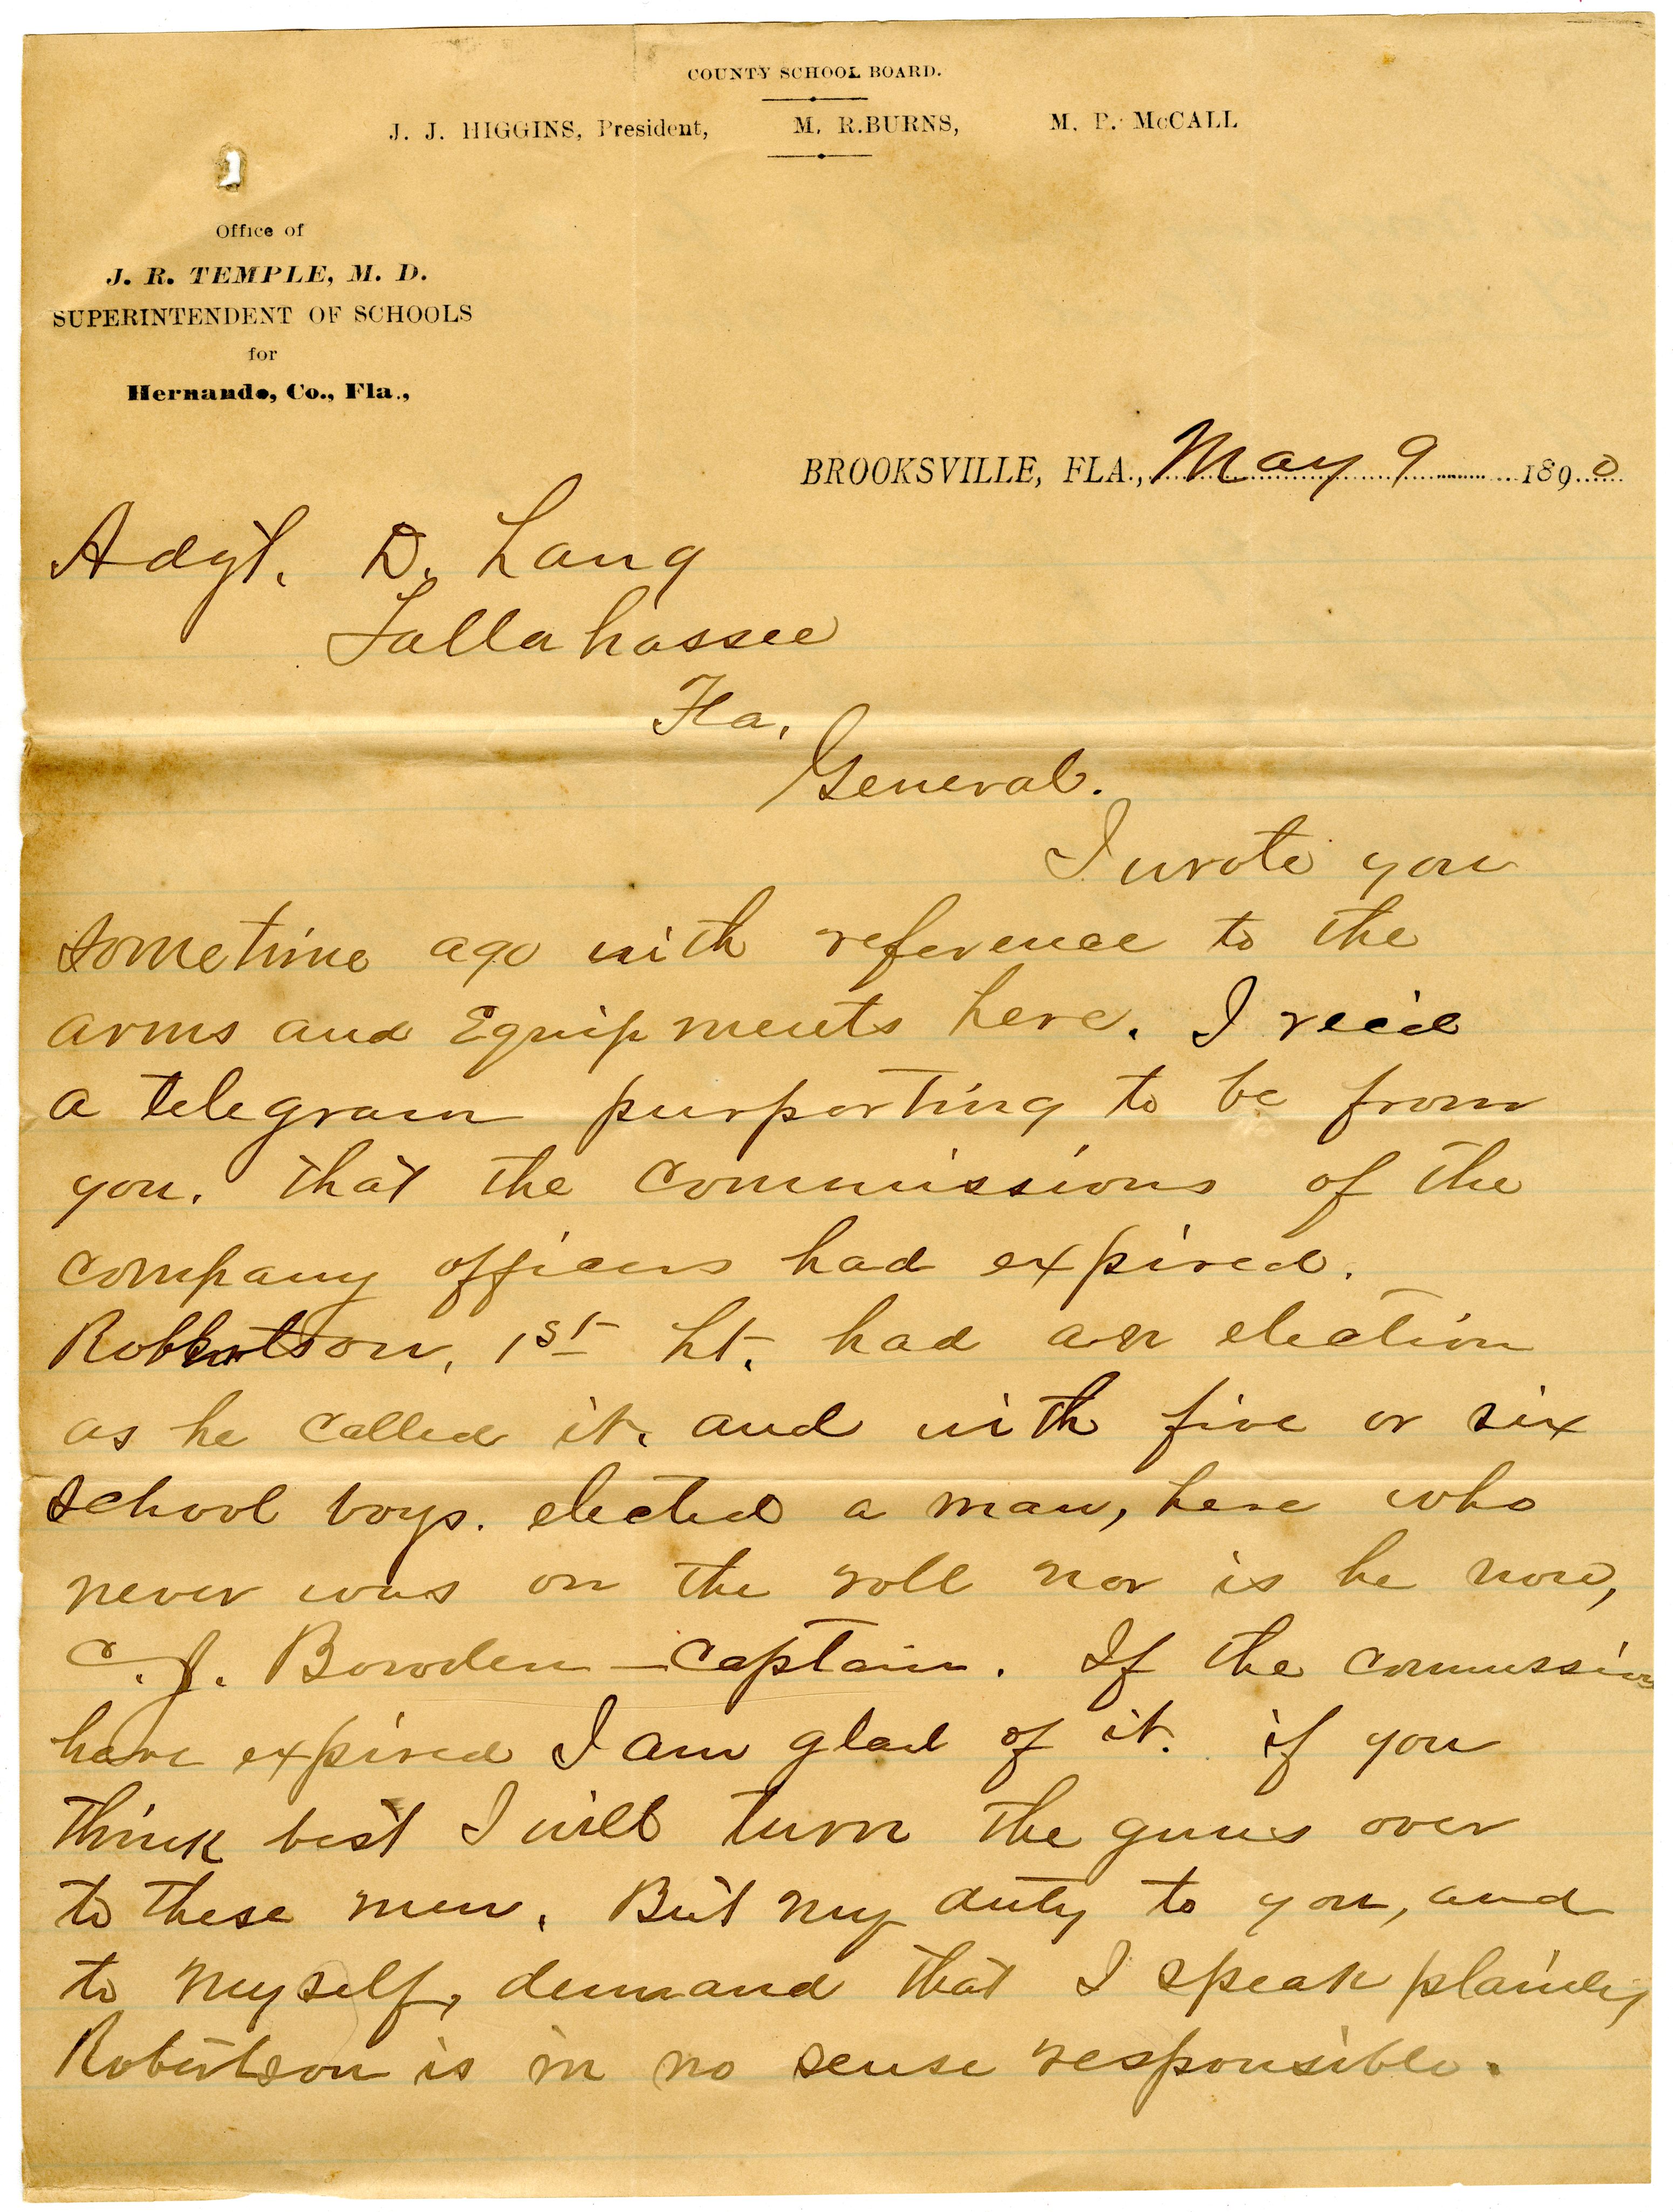 COUNTY SCHOOL BOARD.
J. J. HIGGINS, President, M. R. BURNS, M. P. McCALL
Office of
J. R. TEMPLE, M. D.
SUPERINTENDENT OF SCHOOLS
for
Hernando, Co., Fla.,
BROOKSVILLE, FLA., May 9 1890
Adgt. D. Lang
Tallahassee
Fla,
General.
I wrote you
sometime ago with reference to the
arms and Equipments here. I recie
a telegram purporting to be from
you. that the commissions of the
company officers had expired.
Robbertson, 1st Lt. had an election
as he called it. and with five or six
school boys. elected a man, here who
never was on the roll nor is he now,
C. J. Bowden - Captain. If the commissions
have expired I am glad of it. if you
think best I will turn the guns over
to these men. But my duty to you, and
to myself, demand that I speak plainly
Robertson is in no sense responsible.